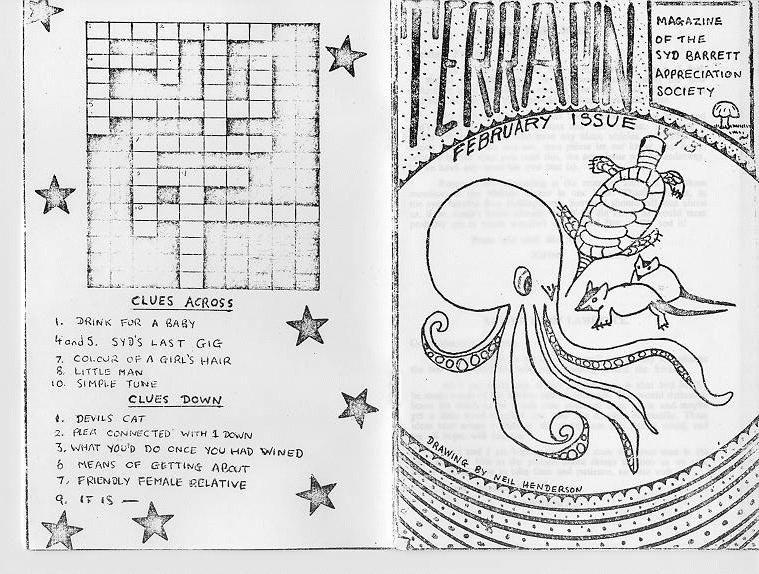 CLUES ACROSS
1. DRINK FOR A BABY
4 and 5. SYD'S LAST GIG
7. COLOUR OF A GIRL'S HAIR
8. LITTLE MAN
10. SIMPLE TUNE
CLUES DOWN
1. DEVILS CAT
2. PLEA CONNECTED WITH 1 DOWN
3. WHAT YOU'D DO ONCE YOU HAD WINED
6 MEANS OF GETTING ABOUT
7. FRIENDLY FEMALE RELATIVE
9. IT IS —
TERRAPIN
MAGAZINE
OF THE
SYD BARRETT
APPRECIATION
SOCIETY
FEBRUARY ISSUE
DRAWING BY NEIL HENDERSON